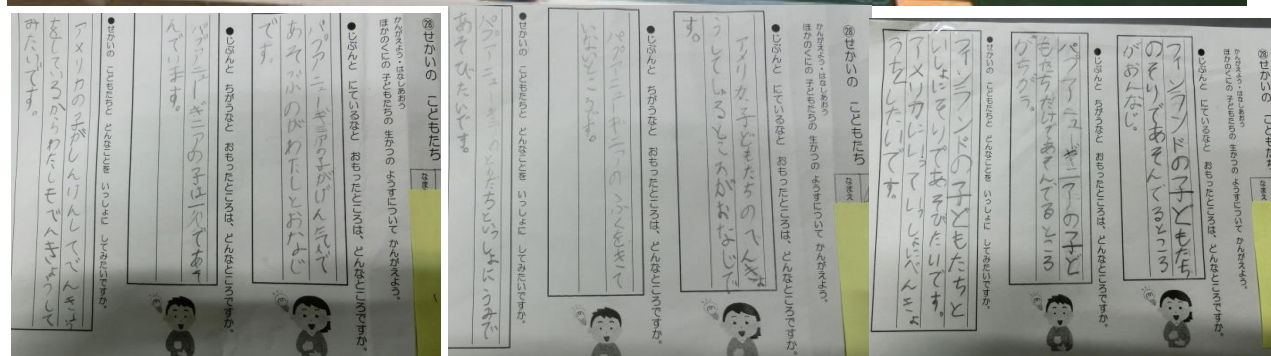 ㉘せかいの こどもたち
なまえ
かんがえよう・はなしあおう
ほかのくにの 子どもたちの 生かつの ようすについて かんがえよう。
●じぶんと にているなと おもったところは、どんなところですか。
フィンランドの子どもたち
のそりであそんでるところ
がおんなじ。
●じぶんと ちがうなと おもったところは、どんなところですか。
パプアニューギニアーの子ど
もたちだけであそんでるところ
がちがう。
●せかいの こどもたちと どんなことを いっしょに してみたいですか。
フィンランドの子どもたちと
いしょにそりであそびたいです。
アメリカにいっていっしょにべんきょ
うもしたいです。
㉘せかいの こどもたち
なまえ
かんがえよう・はなしあおう
ほかのくにの 子どもたちの 生かつの ようすについて かんがえよう。
●じぶんと にているなと おもったところは、どんなところですか。
アメリカ子どもたちのべんきょ
うしているところがおなじで
す。
●じぶんと ちがうなと おもったところは、どんなところですか。
パプアニューギニアの
ところです。
●せかいの こどもたちと どんなことを いっしょに してみたいですか。
パプアニューギニアの
たちといっしょにうみで
あそびたいです。
㉘せかいの こどもたち
なまえ
かんがえよう・はなしあおう
ほかのくにの 子どもたちの 生かつの ようすについて かんがえよう。
●じぶんと にているなと おもったところは、どんなところですか。
パプアニューギニアの子がげんきで
あそぶのがわたしとおなじ
です。
●じぶんと ちがうなと おもったところは、どんなところですか。
パプアニューギニアの子は
んでいます。
●せかいの こどもたちと どんなことを いっしょに してみたいですか。
アメリカの子がしんけんしてべんきょう
をしているからわたしもべんきょうして
みたいです。